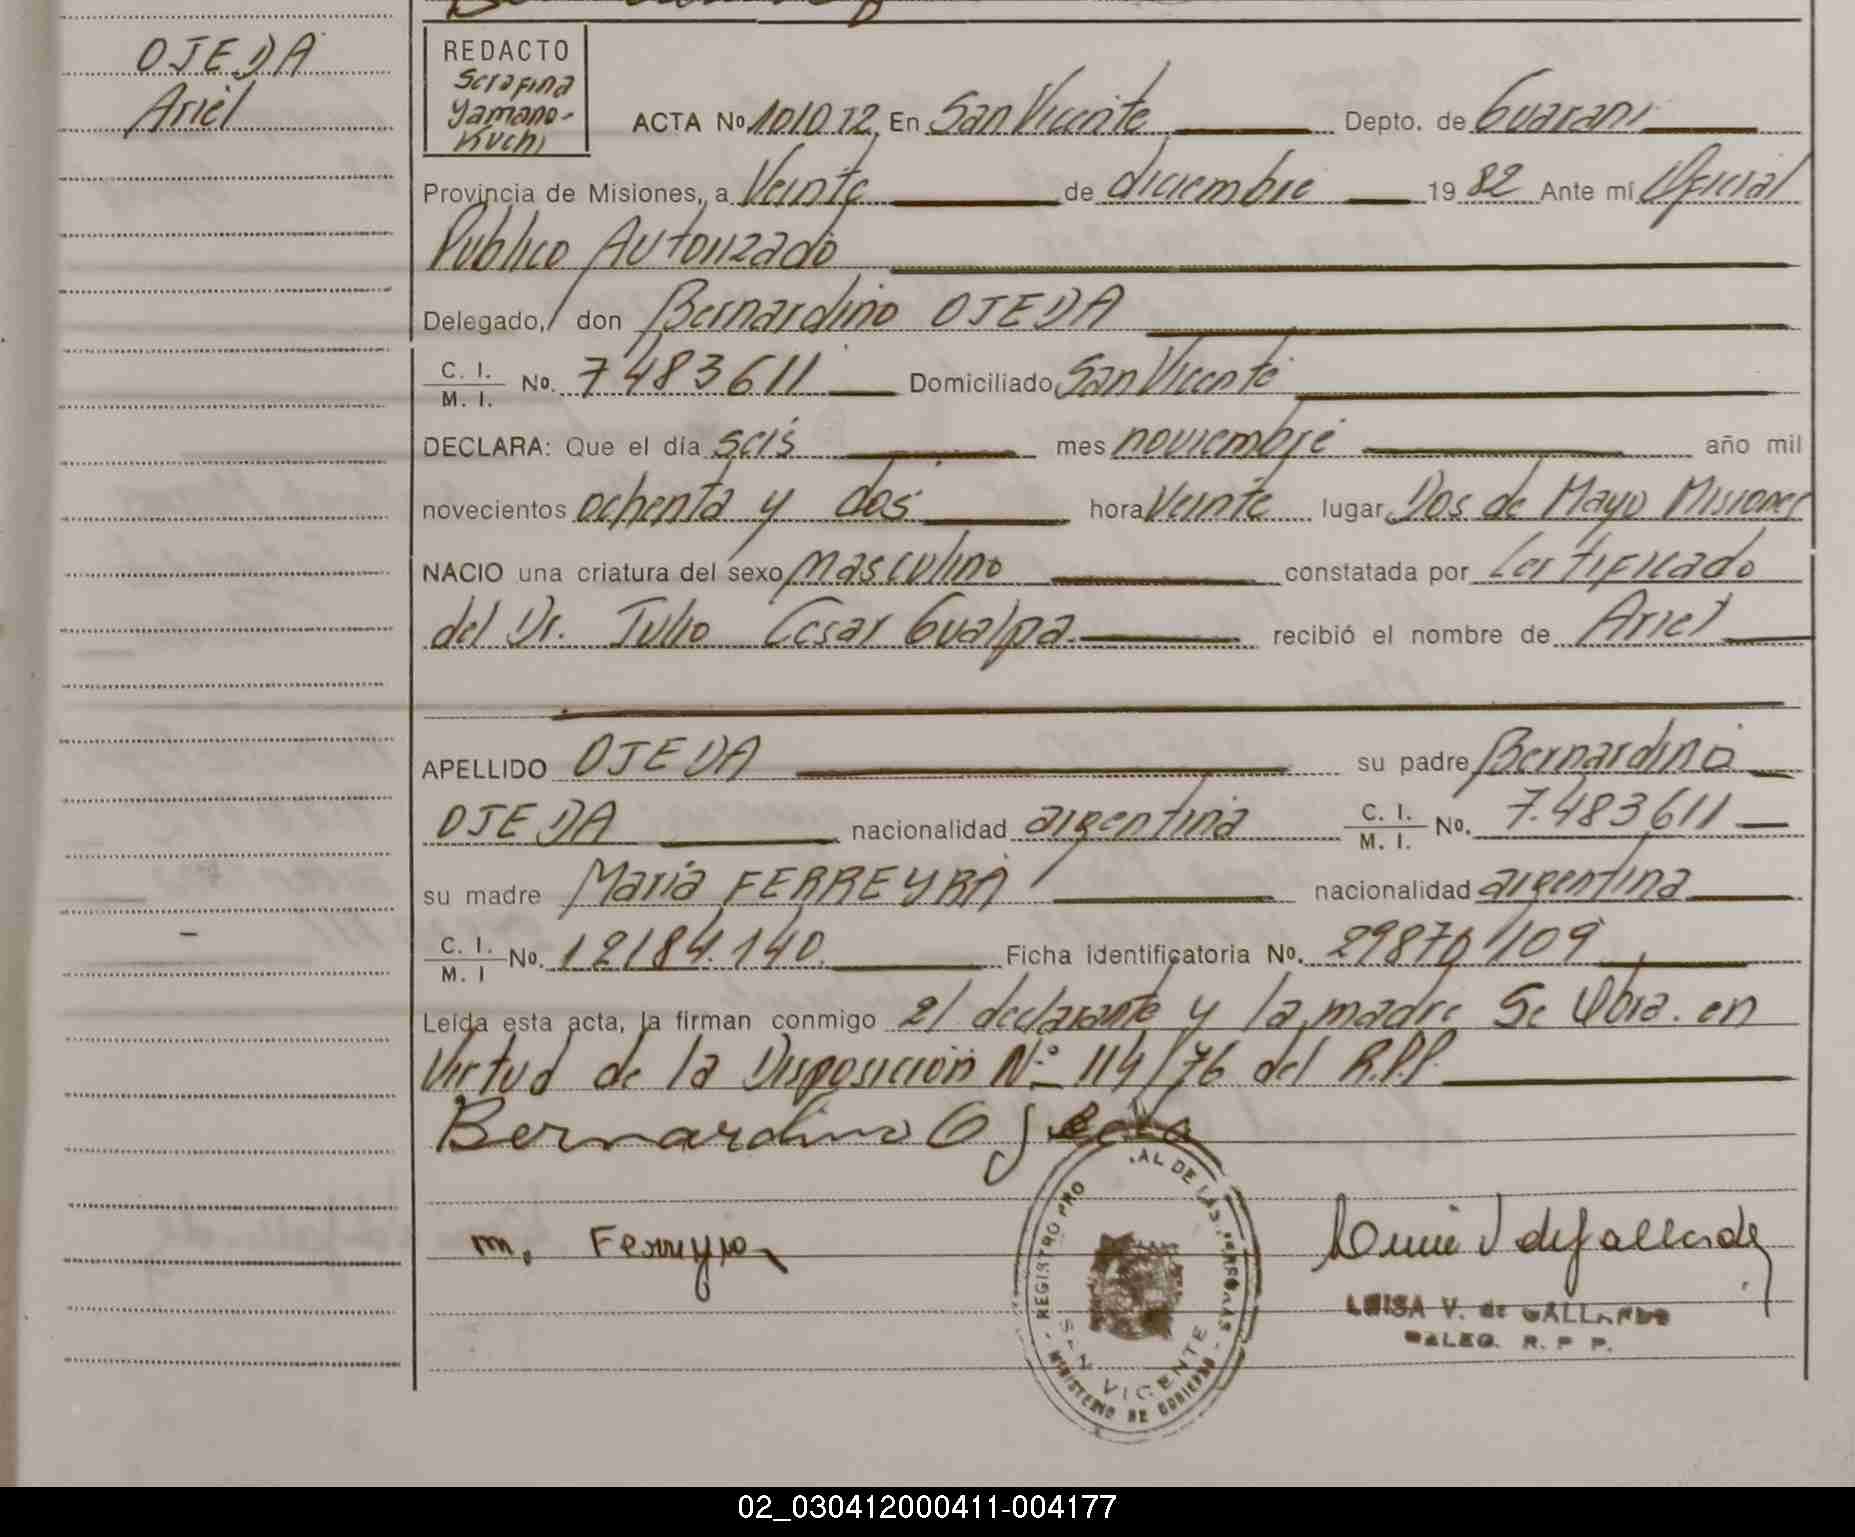 OJEDA
Ariel
REDACTO
Serafina
Yamano-
Kuchi
ACTA Nº 1010 T2 En San Vicente Depto. de Guarani
Provincia de Misiones, a Veinte de diciembre 19 82 Ante mí Oficial
Publico Autorizado
Delegado, don Bernardino OJEDA
C. I.
M. I. No. 7483611 Domiciliado San Vicente
DECLARA: Que el día seis mes noviembre año mil
novecientos ochenta y dos hora Veinte lugar Dos de Mayo Misiones
NACIO una criatura del sexo masculino constatada por Certificado
del Dr. Julio Cesar Gualpa. recibió el nombre de Ariel
APELLIDO OJEDA su padre Bernardino
OJEDA nacionalidad argentina C. I.
M. I. No. 7.483611
su madre Maria FERREYRA nacionalidad argentina
C. I.
M. I No. 12184.140. Ficha identificatoria No. 29870/109
Leída esta acta, la firman conmigo el declarante y la madre Se Obra. en
Virtud de la Disposición Nº 114/76 del R.P.P.
Bernardino Ojeda
m. Ferreyra
REGISTRO PRO AL DE LAS PERSONAS
SAN VICENTE
MINISTERIO DE GOBIERNO
LUISA V. de GALLARDO
DALEG. R. P P.
02_030412000411-004177